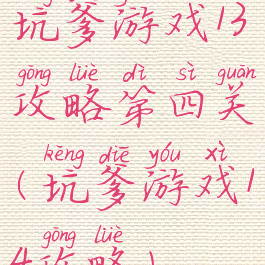 坑爹游戏13
gōng lüè dì sì guān
攻略第四关
kēng diē yóu xì
(坑爹游戏1
gōng lüè
4攻略)